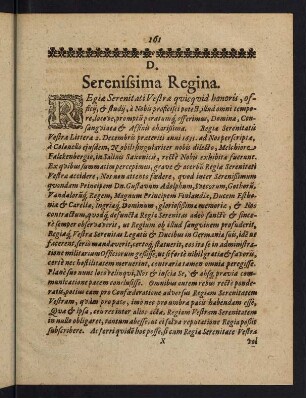 161
D.
Serenissima Regina.
REgiæ Serenitati Vestræ quicquid honoris, of-
ficij, & studij, à Nobis proficisci potest, illud omni tempo-
re, locove, promptis & paratis offerimus, Domina, Con-
sanguinea & Affinis charissima. Regiæ Serenitatis
Vestræ Literæ 2. Decembris præteriti anni 1635. ad Nos perscriptæ,
à Colonello ejusdem, & nobis singulariter nobis dilecto, Melchiore à
Falckenbergio, in Salinis Saxonicis, rectè Nobis exhibitæ fuerunt.
Ex quibus summatim percepimus, grave & acerbū Regiæ Serenitati
Vestræ accidere, Nos non attentè fœdere, quod inter Serenissimum
quondam Principem Dn. Gustavum Adolphum, Suecorum, Gothorū,
Vandalorūq; Regem, Magnum Principem Finlandiæ, Ducem Estho-
niæ & Careliæ, Ingriæq; Dominum, gloriosissimæ memoriæ, & Nos
contractum, quodq; defuncta Regia Serenitas adeò sanctè & since-
rè semper observaverit, ut Regium ob illud sanguinem profuderit,
Regiæq; Vestræ Serenitas Legatis & Ducibus in Germania suis, idē ut
facerent, seriò mandaverit, servatq; statuere, eos ita se in administra-
tione militarium Officiorum gessisse, ut si fortè nihil gratiæ & favoris,
certè etiam nihil odij mereantur, contraria tamen omnia peregisse.
Planè suo nunc loco relinqui, Nos & inscia Se, & absq; prævia com-
municatione pacem conclusisse. Omnibus autem rebus rectè ponde-
ratis, pactum eam pro Consæderatione adversus Regiam Serenitatem
Vestram, quàm pro pace, imò nec pro umbra pacis habendam esse,
Quæ & ipsa, ceu res inter alios acta, Regiam Vestram Serenitatem
in nullo obligaret, tantum abesse, ut ei salvæ reputatione Regia possit
subscribere. At ferri quidē hoc posse, si cum Regiæ Serenitatis Vestræ
X
vel